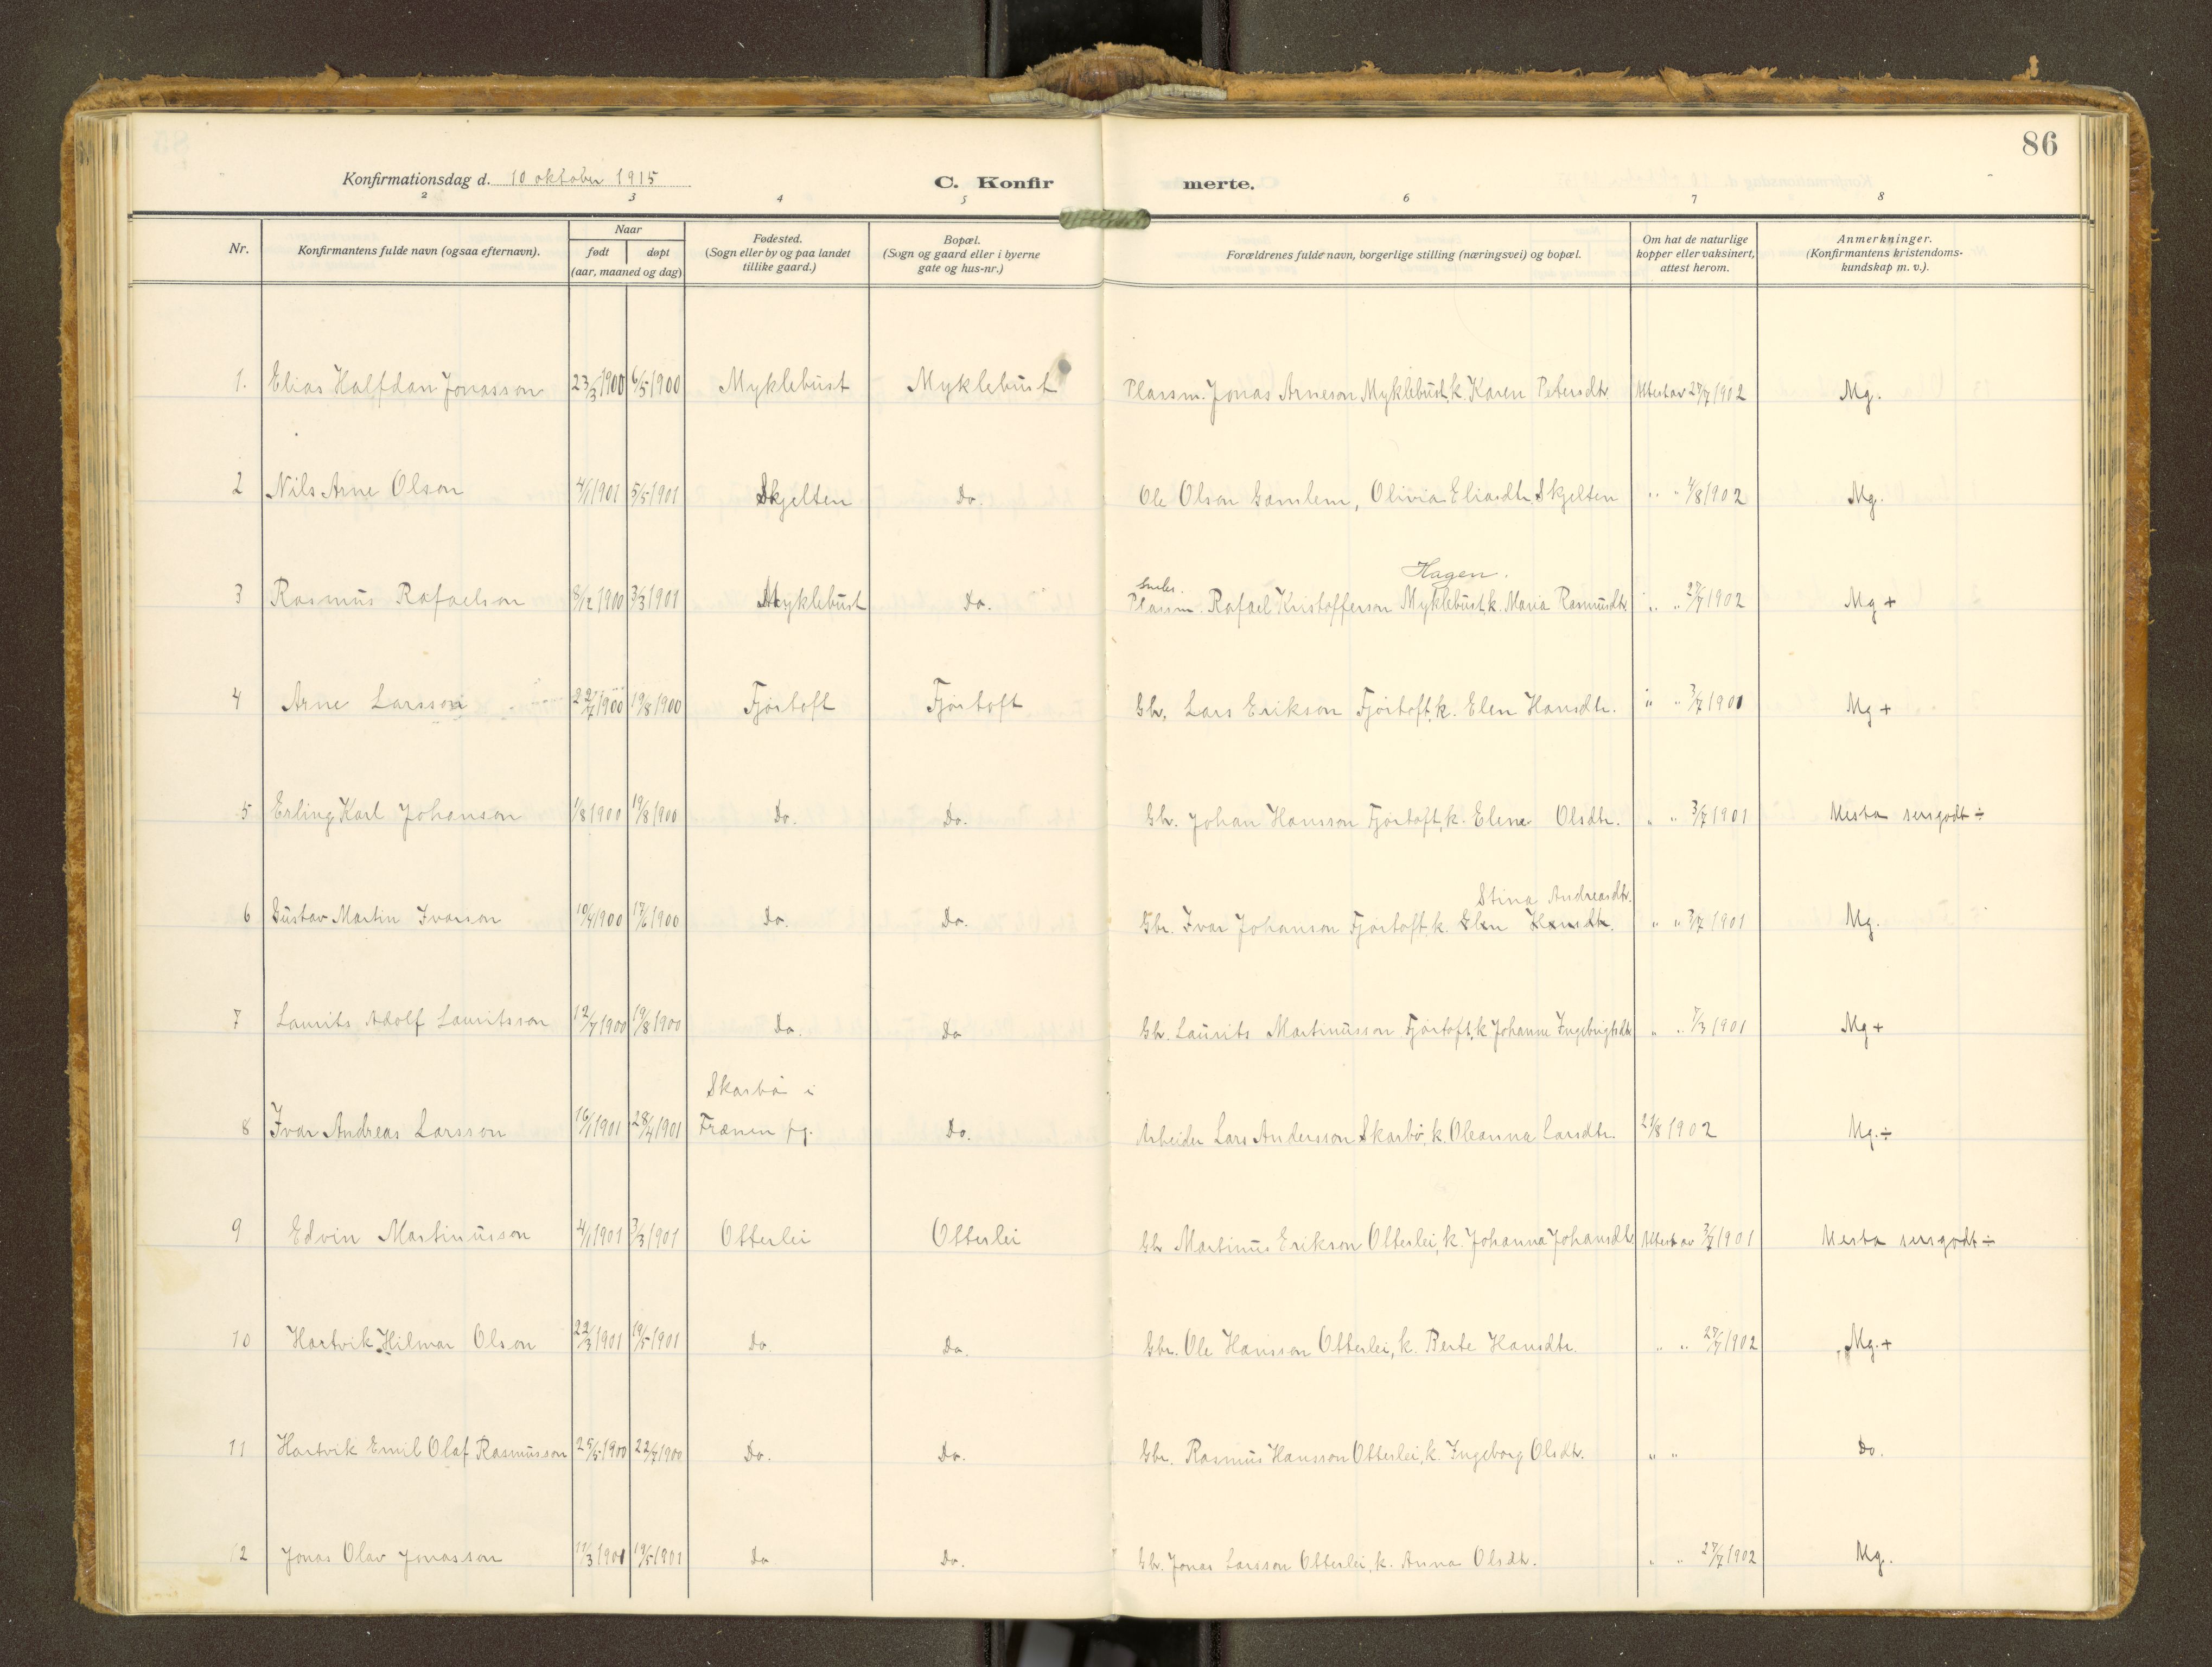 86
Konfirmationsdag d. 10 oktober 1915 C. Konfir merte.
2 3 4 5 6 7 8
Nr. Konfirmantens fulde navn (ogsaa efternavn). Naar født døpt (aar, maaned og dag) Fødested. (Sogn eller by og paa landet tillike gaard.) Bopæl. (Sogn og gaard eller i byerne gate og hus-nr.) Forældrenes fulde navn, borgerlige stilling (næringsvei) og bopæl. Om hat de naturlige kopper eller vaksinert, attest herom. Anmerkninger. (Konfirmantens kristendoms-kundskap m. v.).
1. Elias Halfdan Jonasson 23/3 1900 6/5 1900 Myklebust Myklebust Plassm. Jonas Arneson Myklebust, k. Karen Petersdtr. Attest av 27/7 1902 Mg.
2 Nils Arne Olson 4/1 1901 5/5 1901 Skjelten Do. Ole Olson Gamlem, Olivia Eliasdtr. Skjelten " " 4/8 1902 Mg.
Hagen.
3 Rasmus Rafaelson 8/12 1900 3/3 1901 Myklebust Do. Plassm. Rafael Kristofferson Myklebust, k. Maria Rasmusdtr. " " 27/7 1902 Mg +
4 Arne Larsson 22/7 1900 19/8 1900 Fjörtoft Fjörtoft Gbr. Lars Erikson Fjörtoft, k. Elen Hansdtr. " " 3/7 1901 Mg +
5 Erling Karl Johanson 1/8 1900 19/8 1900 Do. Do. Gbr. Johan Hansson Fjörtoft, k. Eline Olsdtr. " " 3/7 1901 Mesta sersgodt ÷
Stina Andreasdtr.
6 Gustav Martin Ivarson 10/4 1900 17/6 1900 Do. Do. Gbr. Ivar Johanson Fjörtoft, k. Elen Hansdtr. " " 3/7 1901 Mg.
7 Laurits Adolf Lauritsson 12/7 1900 19/8 1900 Do. Do Gbr. Laurits Martinusson Fjörtoft, k Johanne Ingebrigtsdtr " " 7/3 1901 Mg +
Skarbö i
8 Ivar Andreas Larsson 16/1 1901 28/4 1901 Frænen pg. Do. Arbeider Lars Andersson Skarbö, k. Oleanna Larsdtr. 21/8 1902 Mg. ÷
9 Edvin Martinusson 4/1 1901 3/3 1901 Otterlei Otterlei Gbr Martinus Erikson Otterlei, k. Johanna Johansdtr Attest av 3/7 1901 Mesta sersgodt ÷
10 Hartvik Hilmar Olson 22/3 1901 19/5 1901 Do. Do. Gbr. Ole Hansson Otterlei, k. Berte Hansdtr. " " 27/7 1902 Mg. +
11 Hartvik Emil Olaf Rasmusson 25/5 1900 22/7 1900 Do. Do. Gbr. Rasmus Hansson Otterlei, k. Ingeborg Olsdtr. " " Do.
12 Jonas Olav Jonasson 11/3 1901 19/5 1901 Do Do. Gbr. Jonas Larsson Otterlei, k. Anna Olsdtr. " " 27/7 1902 Mg.